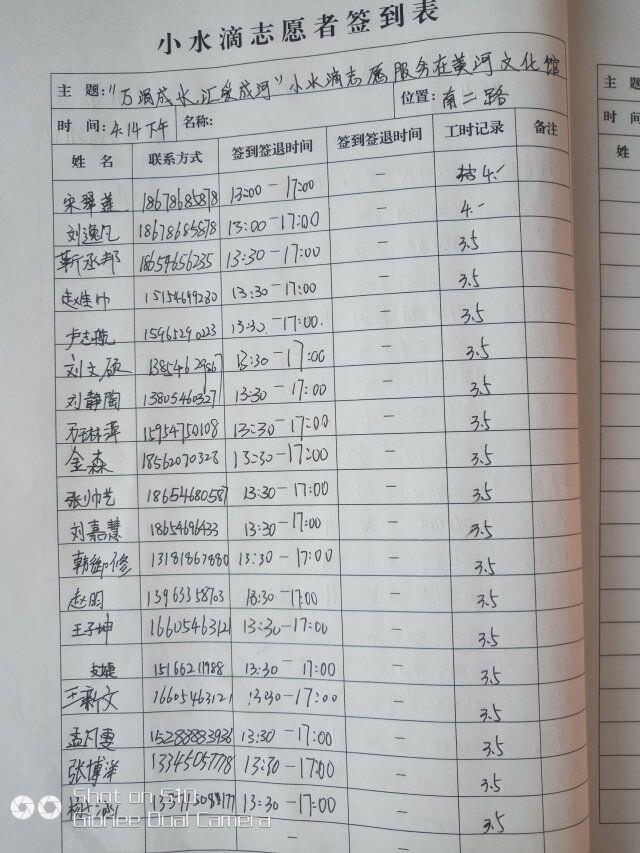 小水滴志愿者签到表
主 题：“万滴成水，汇爱成河”小水滴志愿服务在黄河文化馆
时 间：4.14下午 名称： 位置：南二路
姓 名 联系方式 签到签退时间 签到签退时间 工时记录 备注
宋翠莲 18678685878 13:00-17:00 - 4.-
刘逸凡 18678685878 13:00-17:00 - 4.-
靳丞邦 18654656235 13:30-17:00 - 3.5
赵佳巾 15154699230 13:30-17:00 - 3.5
卢志航 15965290223 13:30-17:00. - 3.5
刘文硕 13854629867 13:30-17:00 - 3.5
刘静陶 13805460327 13:30-17:00 - 3.5
15954750108 13:30-17:00 - 3.5
金森 18562070328 13:30-17:00 - 3.5
张帅艺 18654680587 13:30-17:00 - 3.5
刘嘉慧 18654696433 13:30-17:00 - 3.5
韩御修 13181867880 13:30-17:00 - 3.5
赵明 13963358703 13:30-17:00 - 3.5
王子坤 16605463121 13:30-17:00 - 3.5
15166211988 13:30-17:00 - 3.5
王新文 16605463121 13:30-17:00 - 3.5
孟凡雯 15288883936 13:30-17:00 - 3.5
张博洋 13345057778 13:30-17:00 - 3.5
13:30-17:00 - 3.5
- -
Shot on S10
Gionee Dual Camera
主 题
时 间
姓